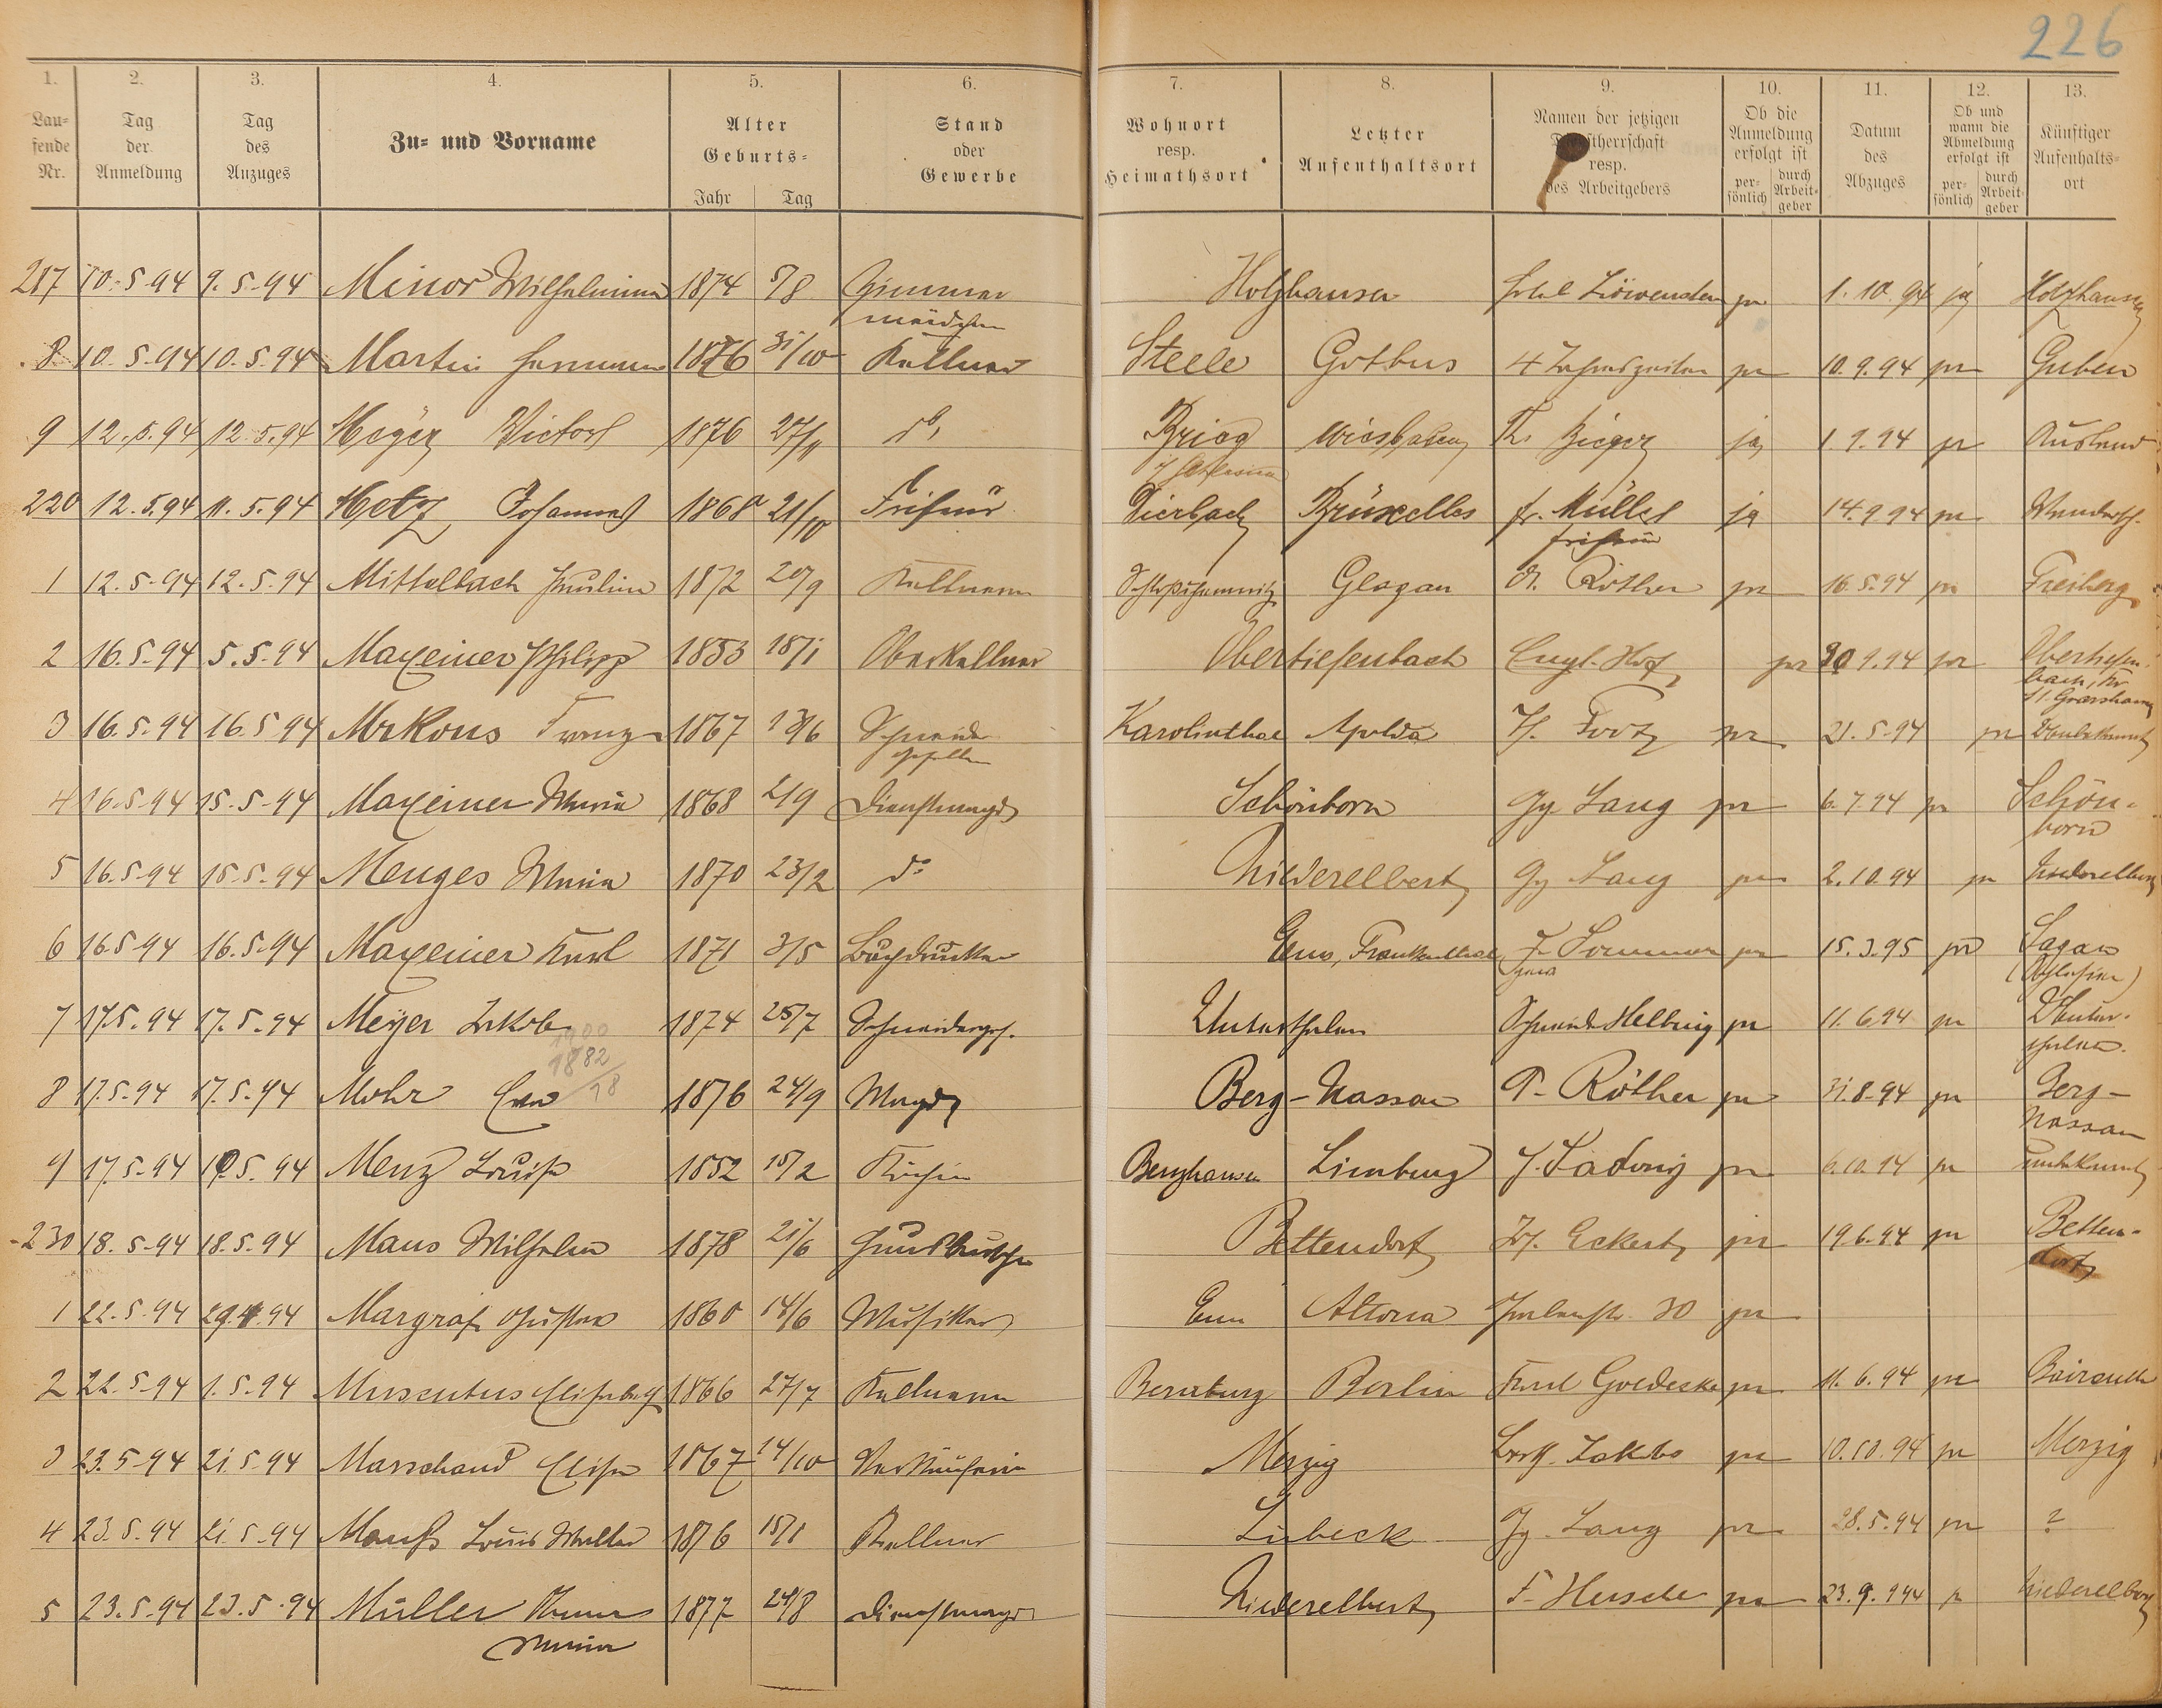 226
1. 2. 3. 4. 5. 6. 7. 8. 9. 10. 11. 12. 13.
Lau-
fende
Nr.
Tag
der
Anmeldung
Tag
des
Anzuges
Zu- und Vorname
Alter
Geburts-
Jahr Tag
Stand
oder
Gewerbe
Wohnort
resp.
Heimathsort
Letzter
Aufenthaltsort
Namen der jetzigen
Dienstherrschaft
resp.
des Arbeitgebers
Ob die
Anmeldung
erfolgt ist
per-
sönlich
durch
Arbeit-
geber
Datum
des
Abzuges
Ob und
wann die
Abmeldung
erfolgt ist
per-
sönlich
durch
Arbeit-
geber
Künftiger
Aufenthalts-
ort
217 10.5.94 9.5.94 Minor Wilhelmine 1874 5/8 Zimmer Holzhausen Hotel Löwenstein 1.10.94 ja Holzhausen
mädchen
8 10.5.94 10.5.94 Martin Hermann 1876 31/10 Kellner Steele Cotbus 4 Jahreszeiten 10.9.94 Guben
9 12.5.94 12.5.94 Meyer Victor 1876 27/11 do Brieg Wiesbaden Th. ja 1.9.94 Ausland
220 12.5.94 11.5.94 Metz Johannes 1868 21/10 Friseur Dierbach Brüxelles fr. Müller ja 14.9.94
Friseur
1 12.5.94 12.5.94 Mittelbach Pauline 1872 20/9 Kellnerin Glogau Röther 16.5.94 Freiberg
2 16.5.94 5.5.94 Maxeiner Philipp 1853 18/1 Oberkellner Obertiefenbach Engl. Hof 30.9.94 Obertiefen-
bach, Kr
St. Goarshausen
3 16.5.94 16.5.94 Mrkous Franz 1867 13/6 Schneider Karolinthal Apolda 21.5.94 Unbekannt
gesellen
4 16.5.94 15.5.94 Maxeiner Maria 1868 2/9 Dienstmagd Schönborn Gg. Lang 6.7.94 Schön-
born
5 16.5.94 15.5.94 Menges Maria 1870 23/2 do Niederelbert Gg. Lang 2.10.94 Niederelbert
6 16.5.94 16.5.94 Maxeiner Karl 1871 3/5 Buchdrucker Ems, Frankenthal Sommer 15.3.95 Sagan
(Schlesien)
7 17.5.94 17.5.94 Meyer Jakob 1874 25/7 Schneiderges. Unterthalen Schneider Helbing 11.6.94
1900
1882
18
8 17.5.94 17.5.94 Mohr Eva 1876 24/9 Magd Berg-Nassau Röther 31.8.94 Berg-
Nassau
9 17.5.94 17.5.94 Menz Louise 1852 15/2 Köchin Berghausen Limburg J. Ladwig 6.10.94 unbekannt
230 18.5.94 18.5.94 Maus Wilhelm 1878 21/6 Hausbursche Bettendorf Eckert 19.6.94 Betten-
dorf
1 22.5.94 29.4.94 Margraf Gustav 1860 14/6 Musiker Ems Altona 30
2 22.5.94 1.5.94 Elisabeth 1866 27/7 Kellnerin Bernburg Berlin Karl Goedecke 11.6.94 Baireuth
3 23.5.94 21.5.94 Marschand Elise 1867 14/10 Verkäuferin Merzig Jakobs 10.10.94 Merzig
4 23.5.94 21.5.94 Mauß Louis Walter 1876 15/1 Kellner Lübeck Gg. Lang 28.5.94 ?
5 23.5.94 23.5.94 Müller Anna 1877 24/8 Dienstmagd Niederelbert 23.9.94 Niederelbert
Maria